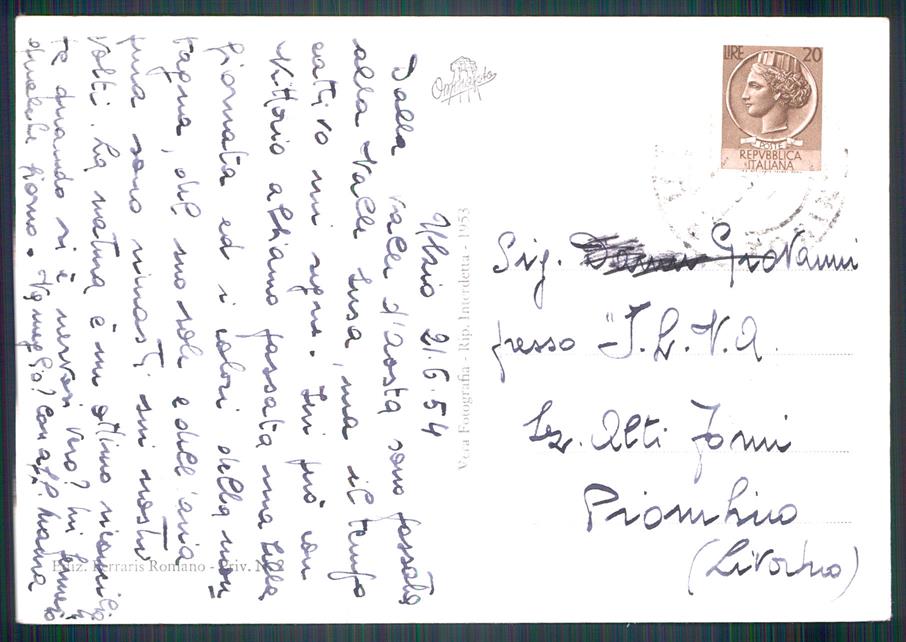 Ulzio 21.6.54
Dalla Valle d'Aosta sono passata
alla Valle Susa, ma il tempo
cattivo mi segue. Ieri però con
Vittorio abbiamo passata una bella
giornata ed i colori della mon
tagna, del suo sole e dell'aria
fina sono rimasti sui nostri
volti. La natura è un ottimo
quando si è nervosi vero? mi
qualche giorno.
Vera Fotografia - Rip. Interdetta - 1953
Ediz. Ferraris Romano - Priv. N. 2
LIRE 20
POSTE
REPVBBLICA
ITALIANA
Sig. Giovanni
presso "I.L.V.A.
Sez. Alti Forni
Piombino
(Livorno)